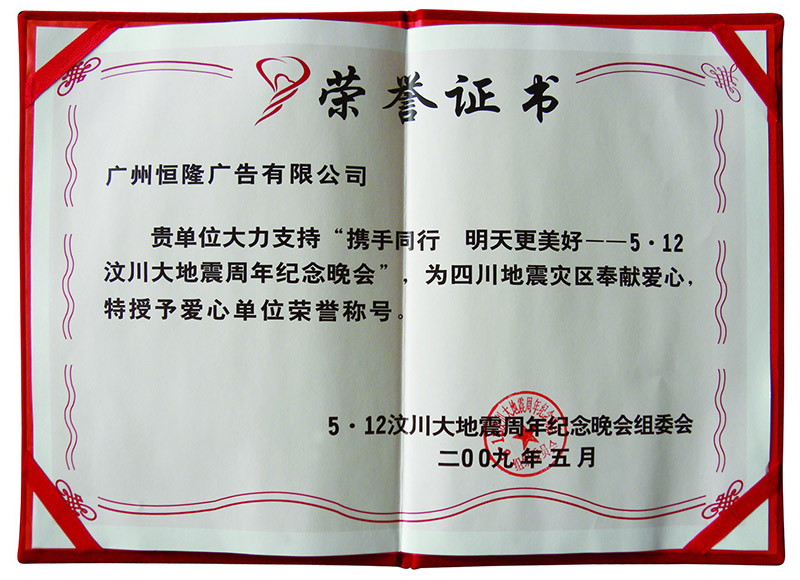 荣誉证书
广州恒隆广告有限公司
贵单位大力支持“携手同行　明天更美好——5·12
汶川大地震周年纪念晚会”，为四川地震灾区奉献爱心，
特授予爱心单位荣誉称号。
5·12汶川大地震周年纪念晚会组委会
二00九年五月